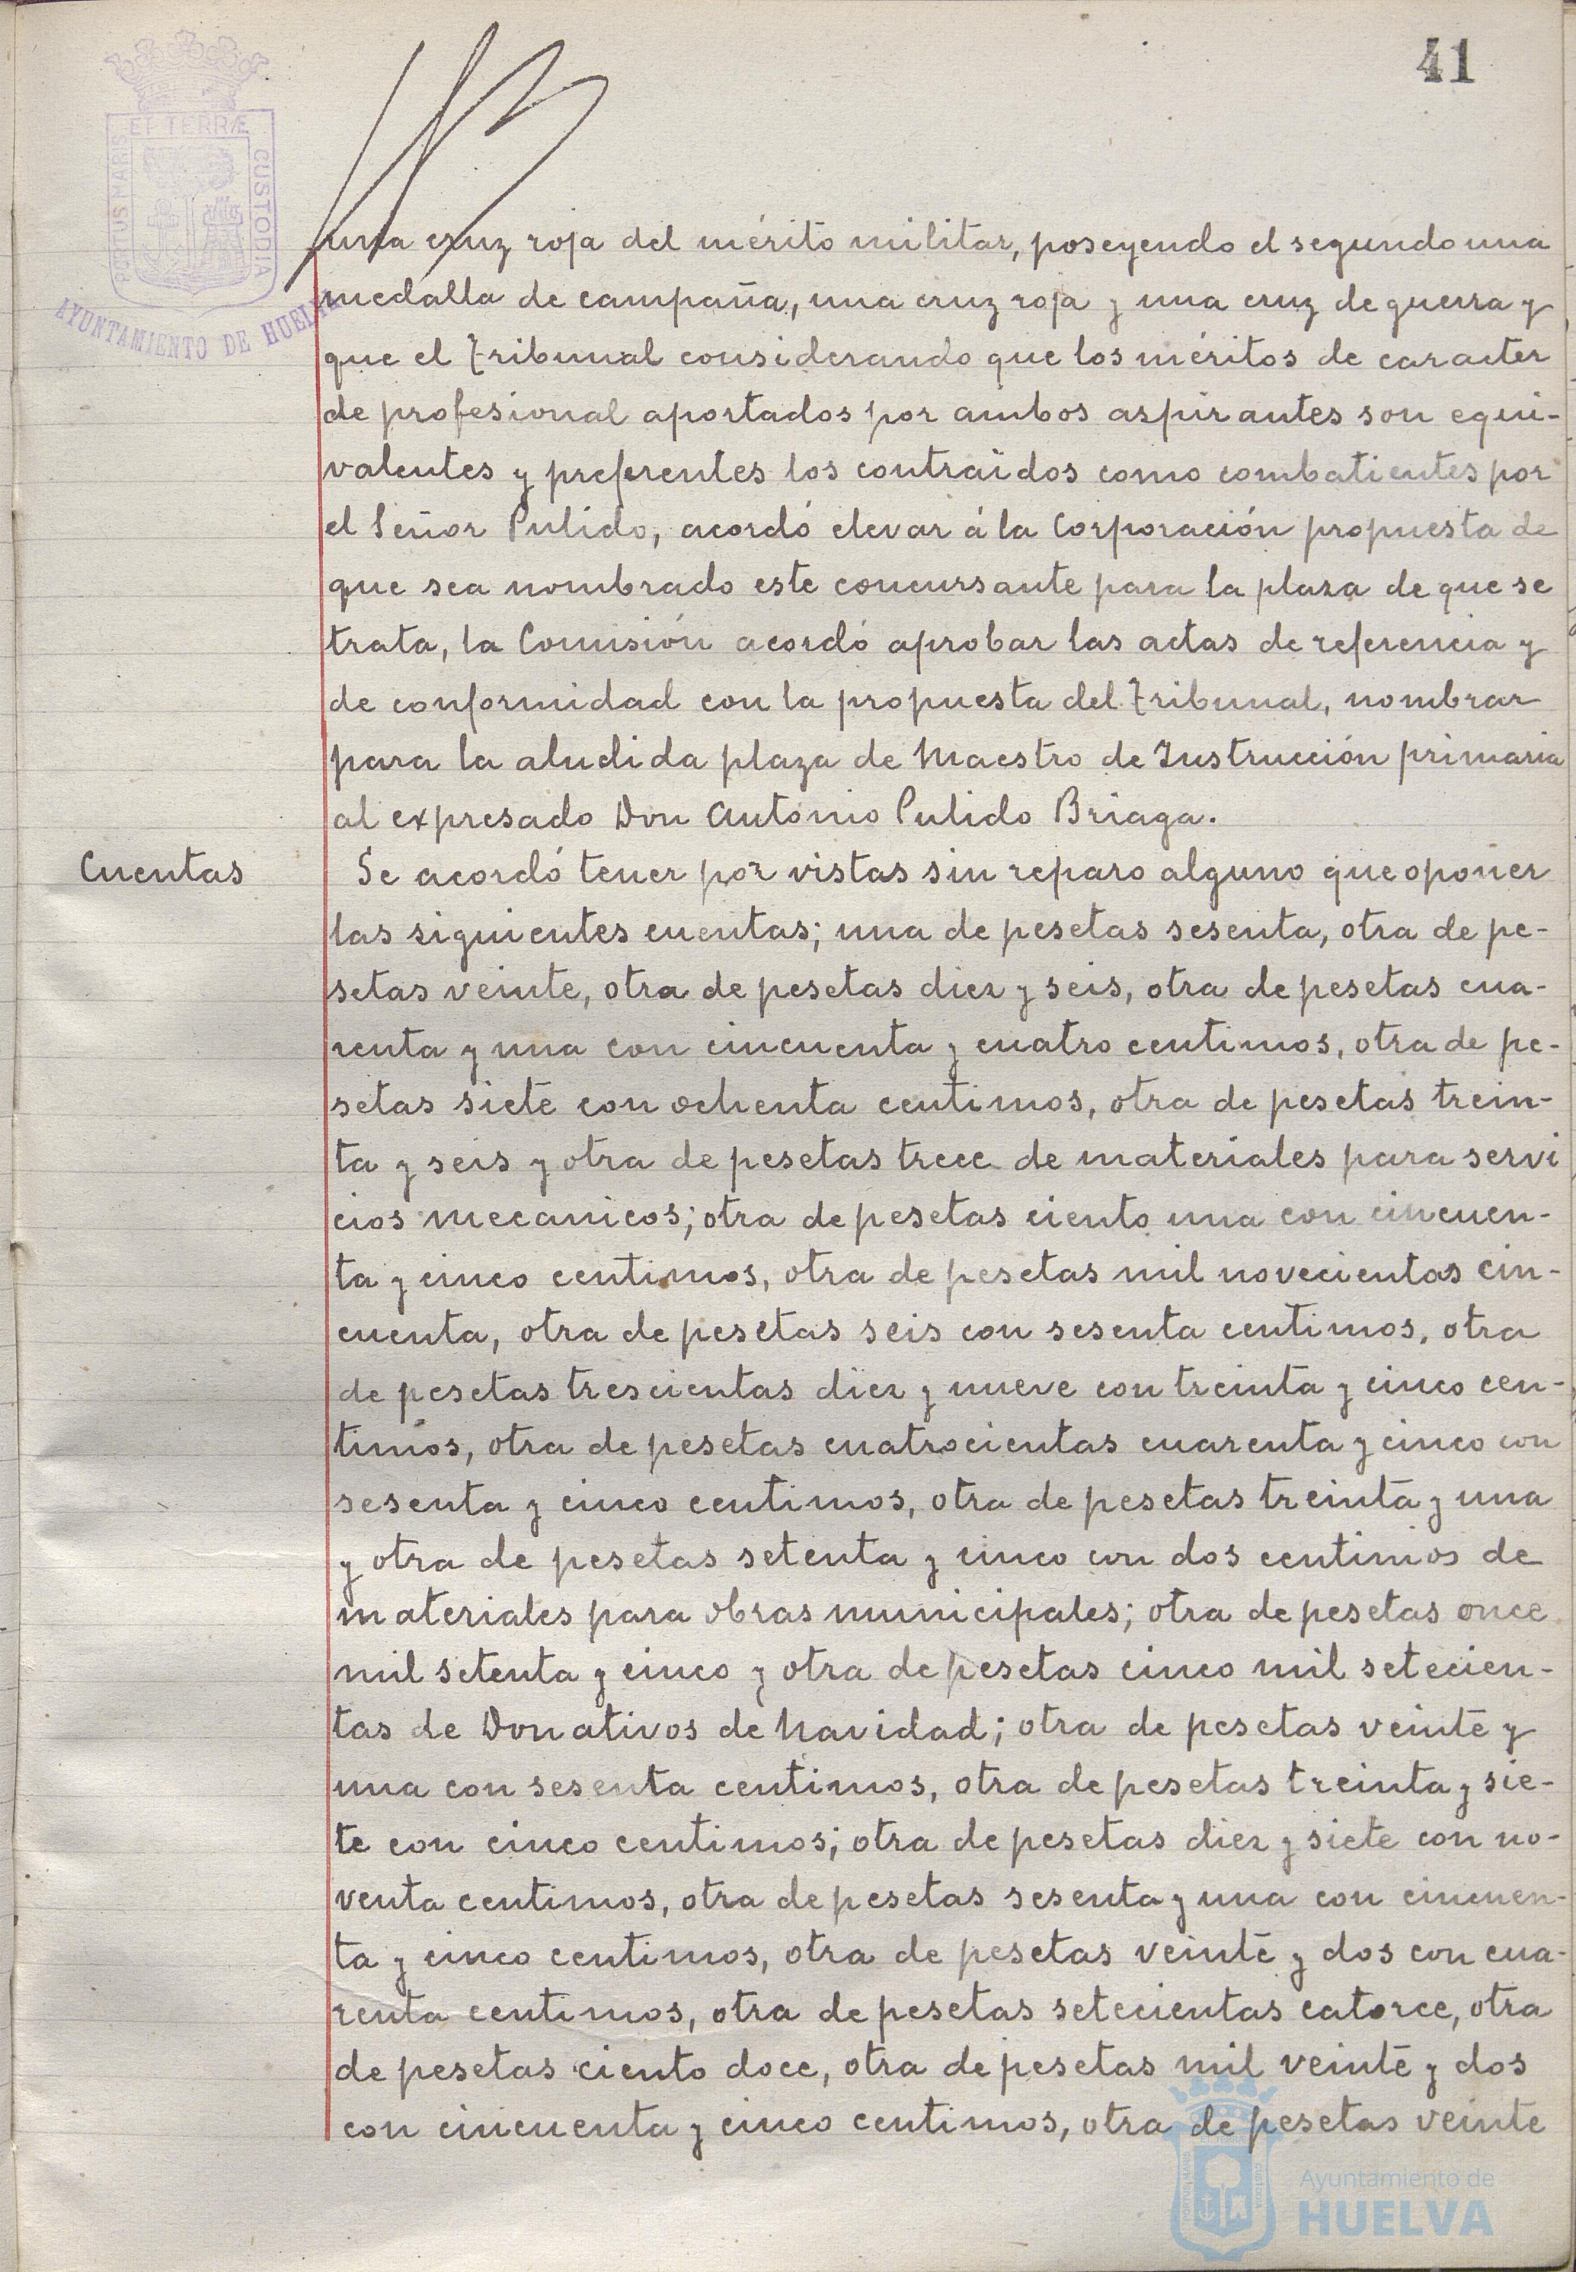 41
ET TERRÆ
PORTUS MARIS
CUSTODIA
AYUNTAMIENTO DE HUELVA
una cruz roja del mérito militar, poseyendo el segundo una
medalla de campaña, una cruz roja y una cruz de guerra y
que el tribunal considerando que los méritos de caracter
de profesional aportados por ambos aspirantes son equi-
valentes y preferentes los contraidos como combatientes por
el Señor Pulido, acordó elevar á la Corporación propuesta de
que sea nombrado este concursante para la plaza de que se
trata, la Comisión acordó aprobar las actas de referencia y
de conformidad con la propuesta del tribunal, nombrar
para la aludida plaza de Maestro de Instrucción primaria
al expresado Don Antonio Pulido Briaga.
Cuentas
Se acordó tener por vistas sin reparo alguno que oponer
las siguientes cuentas; una de pesetas sesenta, otra de pe-
setas veinte, otra de pesetas diez y seis, otra de pesetas cua-
renta y una con cincuenta y cuatro centimos, otra de pe-
setas siete con ochenta centimos, otra de pesetas trein-
ta y seis y otra de pesetas trece de materiales para servi
cios mecanicos; otra de pesetas ciento una con cincuen-
ta y cinco centimos, otra de pesetas mil novecientas cin-
cuenta, otra de pesetas seis con sesenta centimos, otra
de pesetas trescientas diez y nueve con treinta y cinco cen-
timos, otra de pesetas cuatrocientas cuarenta y cinco con
sesenta y cinco centimos, otra de pesetas treinta y una
y otra de pesetas setenta y cinco con dos centimos de
materiales para obras municipales; otra de pesetas once
mil setenta y cinco y otra de pesetas cinco mil setecien-
tas de Donativos de Navidad; otra de pesetas veinte y
una con sesenta centimos, otra de pesetas treinta y sie-
te con cinco centimos; otra de pesetas diez y siete con no-
venta centimos, otra de pesetas sesenta y una con cincuen-
ta y cinco centimos, otra de pesetas veinte y dos con cua-
renta centimos, otra de pesetas setecientas catorce, otra
de pesetas ciento doce, otra de pesetas mil veinte y dos
con cincuenta y cinco centimos, otra de pesetas veinte
Ayuntamiento de
HUELVA